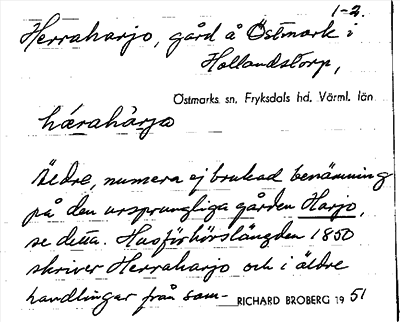 1-2.
Herraharjo, gård å Östmark i
Hollandstorp,
Östmarks sn, Fryksdals hd, Värml. län
hæraharjo
Äldre, numera ej brukad benämning
på den ursprungliga gården Harjo,
se detta. Husförhörslängden 1850
skriver Herraharjo och i äldre
handlingar från sam-
RICHARD BROBERG 1951